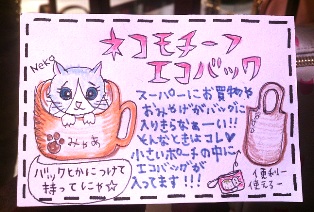 ネコモチーフ
エコバック
Neko
みゃあ
スーパーにお買物や
おみやげがバックに
入りきらなぁーい!!
そんなときはコレ♥
小さいポーチの中に
エコバックが
入ってます!!!
バックとかにつけて
持ってにゃ☆
便利ー
使えるー